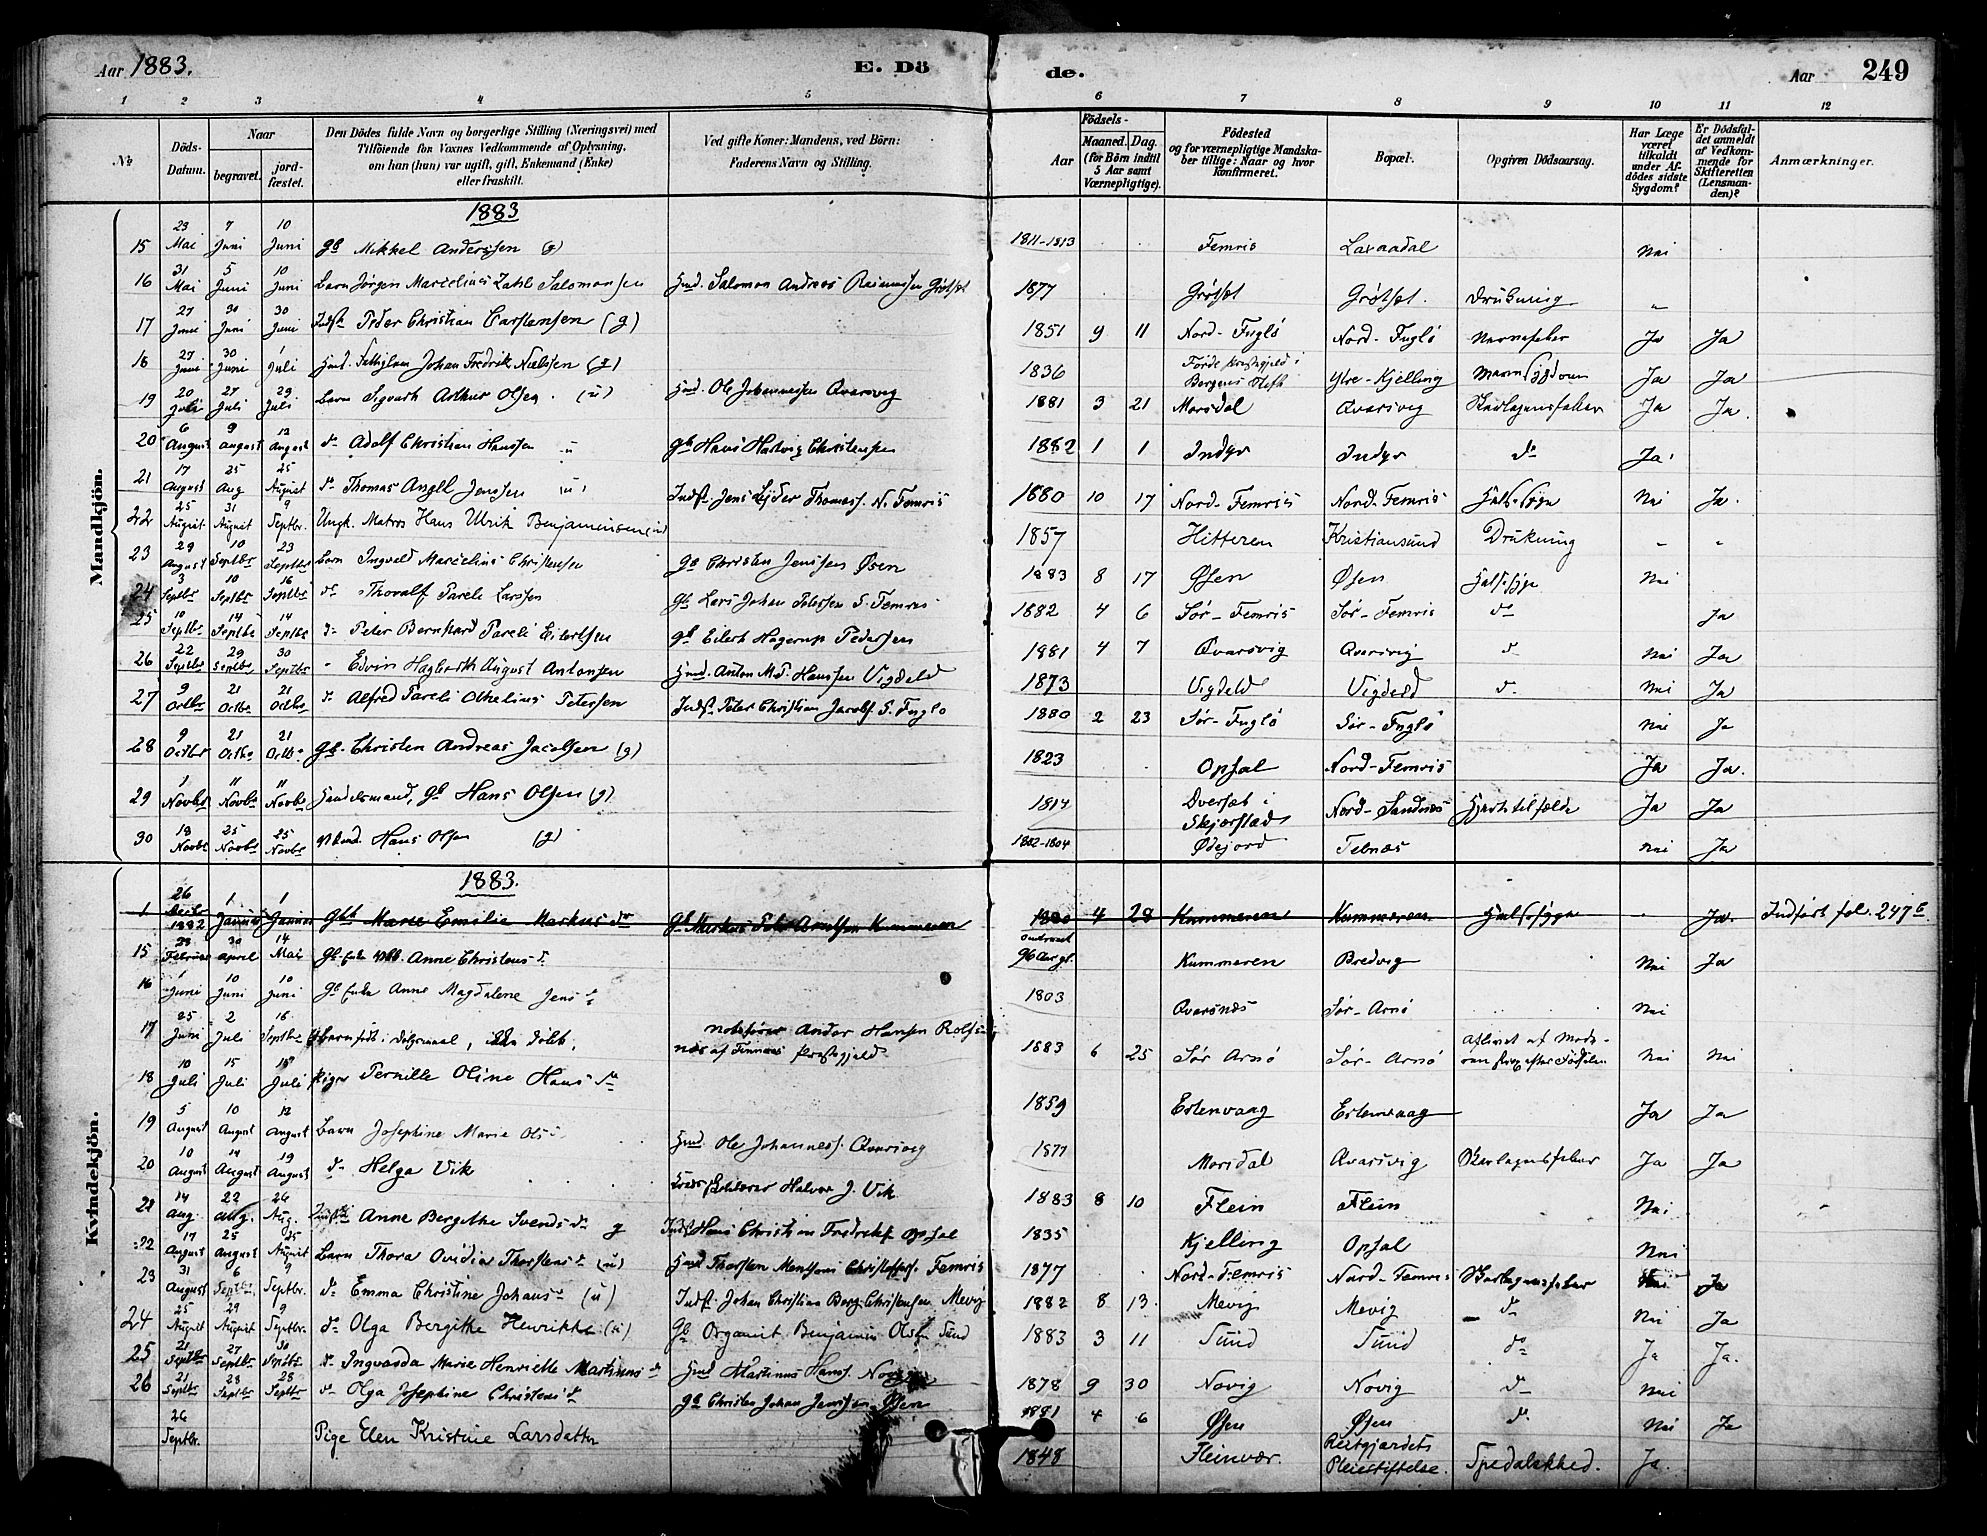 Aar 1883. E. Dö de. Aar 249
1 2 3 4 5 6 7 8 9 10 11 12
No
Döds-Datum.
Naar begravet. jordfæstet.
Den Dödes fulde Navn og borgerlige Stilling (Næringsvei) med
Tilföiende for Voxnes Vedkommende af Oplysning,
om han (hun) var ugift, gift, Enkemand (Enke)
eller fraskilt.
Ved gifte Koner: Mandens, ved Börn:
Faderens Navn og Stilling.
Födsels-
Aar Maaned. Dag.
(for Börn indtil 5 Aar samt Værnepligtige).
Födested
og for værnepligtige Mandskaber tillige: Naar og hvor konfirmeret.
Bopæl.
Opgiven Dödsaarsag.
Har Læge været tilkaldt under Afdödes sidste Sygdom?
Er Dödsfaldet anmeldt af Vedkommende for Skifteretten (Lensmanden)?
Anmærkninger.
Mandkjön.
1883
15 23 Mai 7 Juni 10 Juni Gb Mikkel Anderssen (g) 1811-1813 Femris Laxaadal Nei
16 31 Mai 5 Juni 10 Juni Barn Jørgen Marcelius Zahl Salomonsen Hmd. Salomon Andreas Grøtset 1877 Grøtset Grøtset. Drukning "
17 27 Juni 30 Juni 30 Juni Indst. Peder Christian Carstensen (g) 1851 9 11 Nord-Fuglø Nord-Fuglø Nervefeber Ja Ja
18 27 Juni 30 Juni 1 Juli Hmd. Johan Fredrik Nielssen (g) 1836 Førde Præstegjeld i Bergens Stift Ytre-Kjelling Ja Ja
19 20 Juli 27 Juli 29 Juli Barn Sigvart Arthur Olsen (u) Hmd. Ole Johannessen Qvarsvig 1881 3 21 Morsdal Qvarsvig Skarlagensfeber Ja Ja.
20 6 August 9 August 12 August do Adolf Christian Hanssen u Gb Hans Hartvig Christensen 1882 1 1 Indyr Indyr do Ja
21 17 August 25 Aug 25 August do Thomas Angell Jenssen (u) Indst. Jens Thomass. N. Femris 1880 10 17 Nord-Femris Nord-Femris Halssyge Nei Ja.
22 25 August 31 August 9 Septbr. Ungk. Matros Hans Ulrik Benjaminsen (u) 1857 Hitteren Kristiansund Drukning " "
23 29 August 10 Septbr 23 Septbr Barn Ingvald Marcelius Christensen Gb Christen Jenssen Øsen 1883 8 17 Øsen Øsen Halssyge Nei
24 3 Septbr 10 Septbr 16 Septbr do Thoralf Pareli Larssen Gb Lars Johan Peterssen S. Femris 1882 4 6 Sør-Femris Sør-Femris do Ja
25 10 Septbr 14 Septbr 14 Septbr do Peter Bernhard Pareli Eilertsen Gb Eilert Hagerup Pedersen 1881 4 7 Qvarsvig Qvarsvig do Nei Ja
26 22 Septbr 29 Septbr 30 Septbr " Edvin Hagbarth August Antonsen Hmd. Anton Md. Hanssen Vigdeld 1873 Vigdeld Vigdeld do Nei Ja
27 9 Octbr 21 Octbr 21 Octbr do Alfred Pareli Othelius Petersen Indst. Peter Christian Jacobs. S. Fuglø 1880 2 23 Sør-Fuglø Sør-Fuglø Nei Ja
28 9 Octbr 21 Octbr 21 Octbr Gb. Christen Andreas Jacobsen (g) 1823 Opsal Nord-Femris Ja Ja.
29 1 Novbr 11 Novbr 11 Novbr Handelsmand, Gb Hans Olsen (g) 1814 Øversæt i Skjærstad Nord-Sandnæs Hjertetilfælde Ja Ja
30 18 Novbr 25 Novbr 25 Novbr Hans Olsen (g) 1802-1804 Ødejord Telnæs Nei Ja
Kvindekjön.
1883.
1 26 Decbr 1882 1 Januar 1 Januar Gbb Marie Emilie Markusdr Gb Markus Peter Arntssen Kummeren 1880 4 28 Kummeren Kummeren Halssyge Ja. Indført fol. 247 b
15 23 Februar 30 April 14 Mai Gb Enke Anne Christensdr. omtrent 96 Aar gl. Kummeren Bredvig Nei Ja
16 1 Juni 10 Juni 10 Juni Gb Enke Anne Magdalene Jensdr. 1803 Qvarsnæs Sør-Arnø Nei
17 25 Juni 2 Juli 16 Septbr Barn født i Dølgsmaal, Andor Hansen af Præstegjeld 1883 6 25 Sør Arnø Sør-Arnø Aflivet af Moderen strax efter Fødselen Nei Nei
18 10 Juli 15 Juli 15 Juli Pige Pernille Oline Hansdr 1859 Estenvaag Estenvaag Ja Ja
19 5 August 10 August 12 August Barn Josephine Marie Olsdr Hmd. Ole Johanness. Qvarsvig 1877 Morsdal Qvarsvig Skarlagensfeber Ja Ja
20 10 August 14 August 19 August do Helga Vik Halvor J. Vik 1883 8 10 Flein Flein Nei
21 14 Aug. 22 Aug. 26 Aug. Anne Bergithe Svendsdr g Indst. Hans Christian Fredriks. Opsal 1835 Kjelling Opsal Nei
22 17 August 25 August 25 August Barn Thora Ovidia Thorstensdr (u) Hmd Thorsten Christoffers. Femris 1877 Nord-Femris Nord-Femris Skarlagensfeber Nei Ja
23 31 August 6 Septbr. 9 Septbr. do Emma Christine Johansdr (u) Indst. Johan Christian Berg Christensen Mevig 1882 8 13 Mevig Mevig do Nei Ja
24 25 August 29 August 9 Septbr. do Olga Bergithe Henrikke (u) Gb Organist Benjamin Olsen Sund 1883 3 11 Sund Sund do Ja Ja.
25 21 Septbr 27 Septbr 30 Septbr do Ingvarda Marie Henriette Martinusdr Hmd Martinus Hans. Novig 1878 9 30 Novig Novig do Nei
26 21 Septbr 28 Septbr 28 Septbr do Olga Josephine Christensdr Gb Christen Johan Jenssen Øsen 1881 4 6 Øsen Øsen do Nei Ja
26 Septbr. Pige Elen Kristine Larsdatter 1848 Fleinvær. Reitgjærdets Pleiestiftelse. Spedalskhed. Ja.